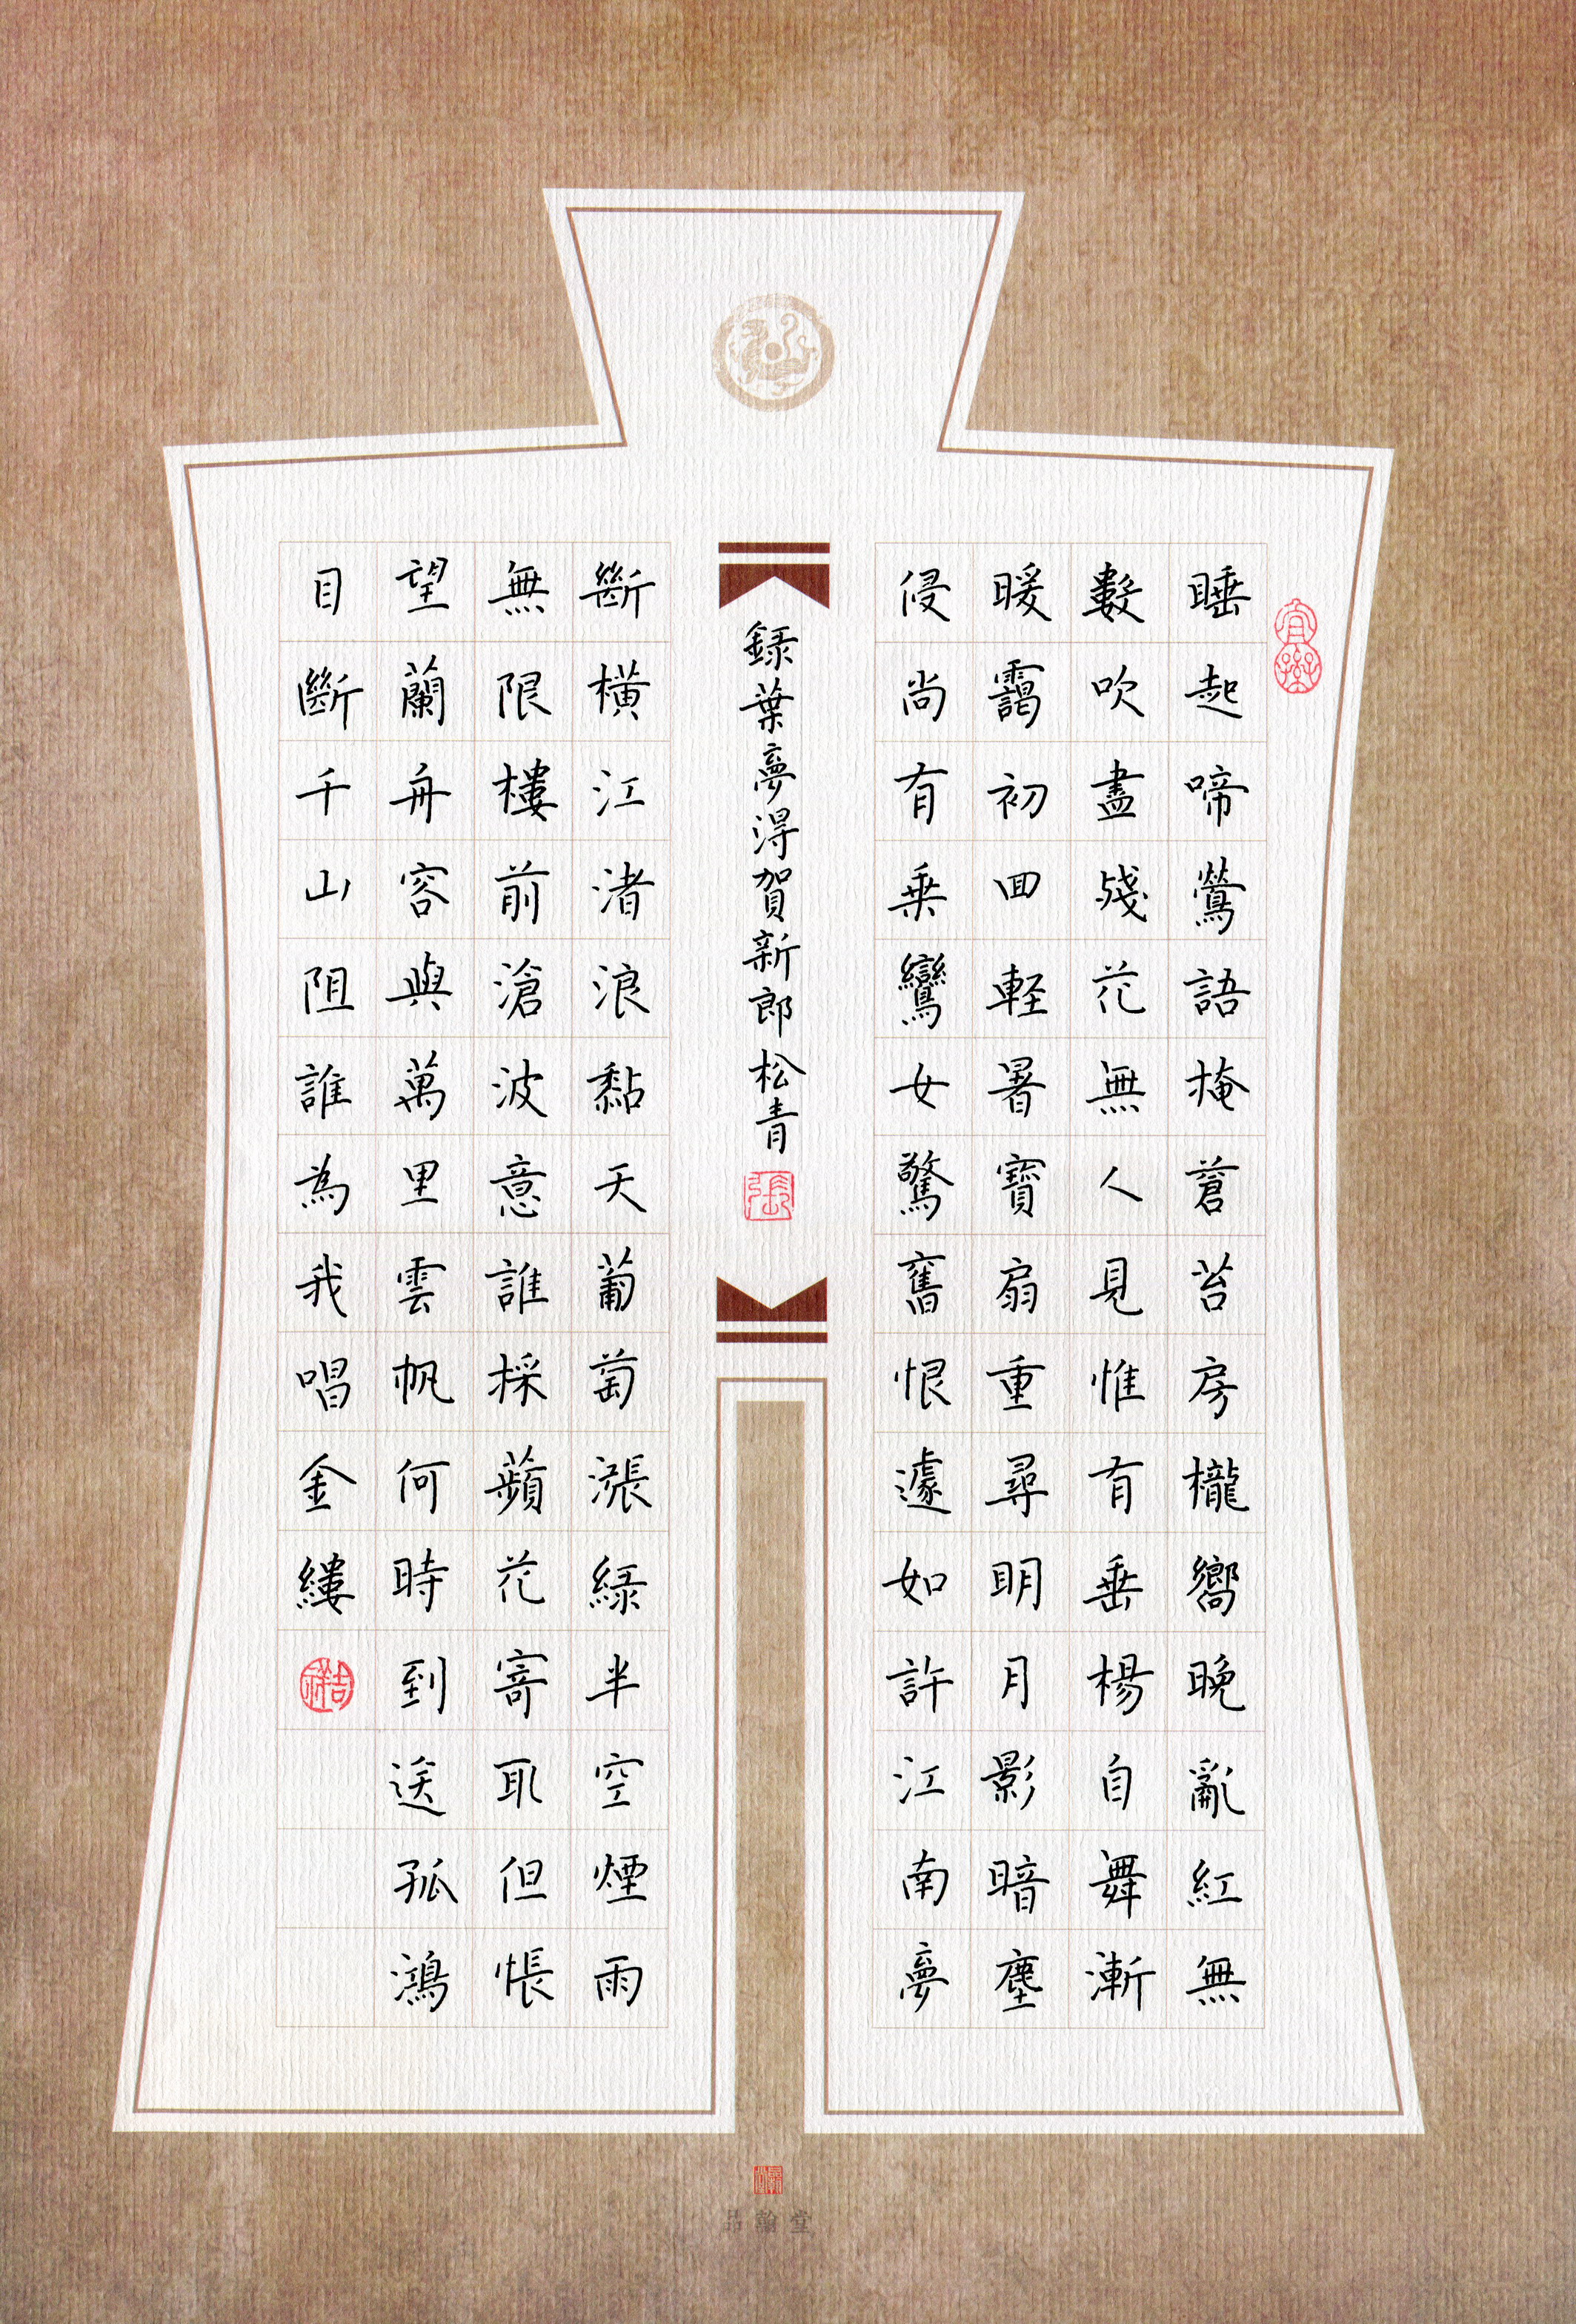 睡起啼鶯語掩蒼苔房櫳嚮晚亂紅無
數吹盡殘花無人見惟有垂楊自舞漸
暖靄初回輕暑寶扇重尋明月影暗塵
侵尚有乘鸞女驚舊恨遽如許江南夢
斷橫江渚浪黏天葡萄漲綠半空煙雨
無限樓前滄波意誰採蘋花寄取但悵
望蘭舟容與萬里雲帆何時到送孤鴻
目斷千山阻誰為我唱金縷
吉祥
録葉夢得賀新郎松青
張
品翰堂